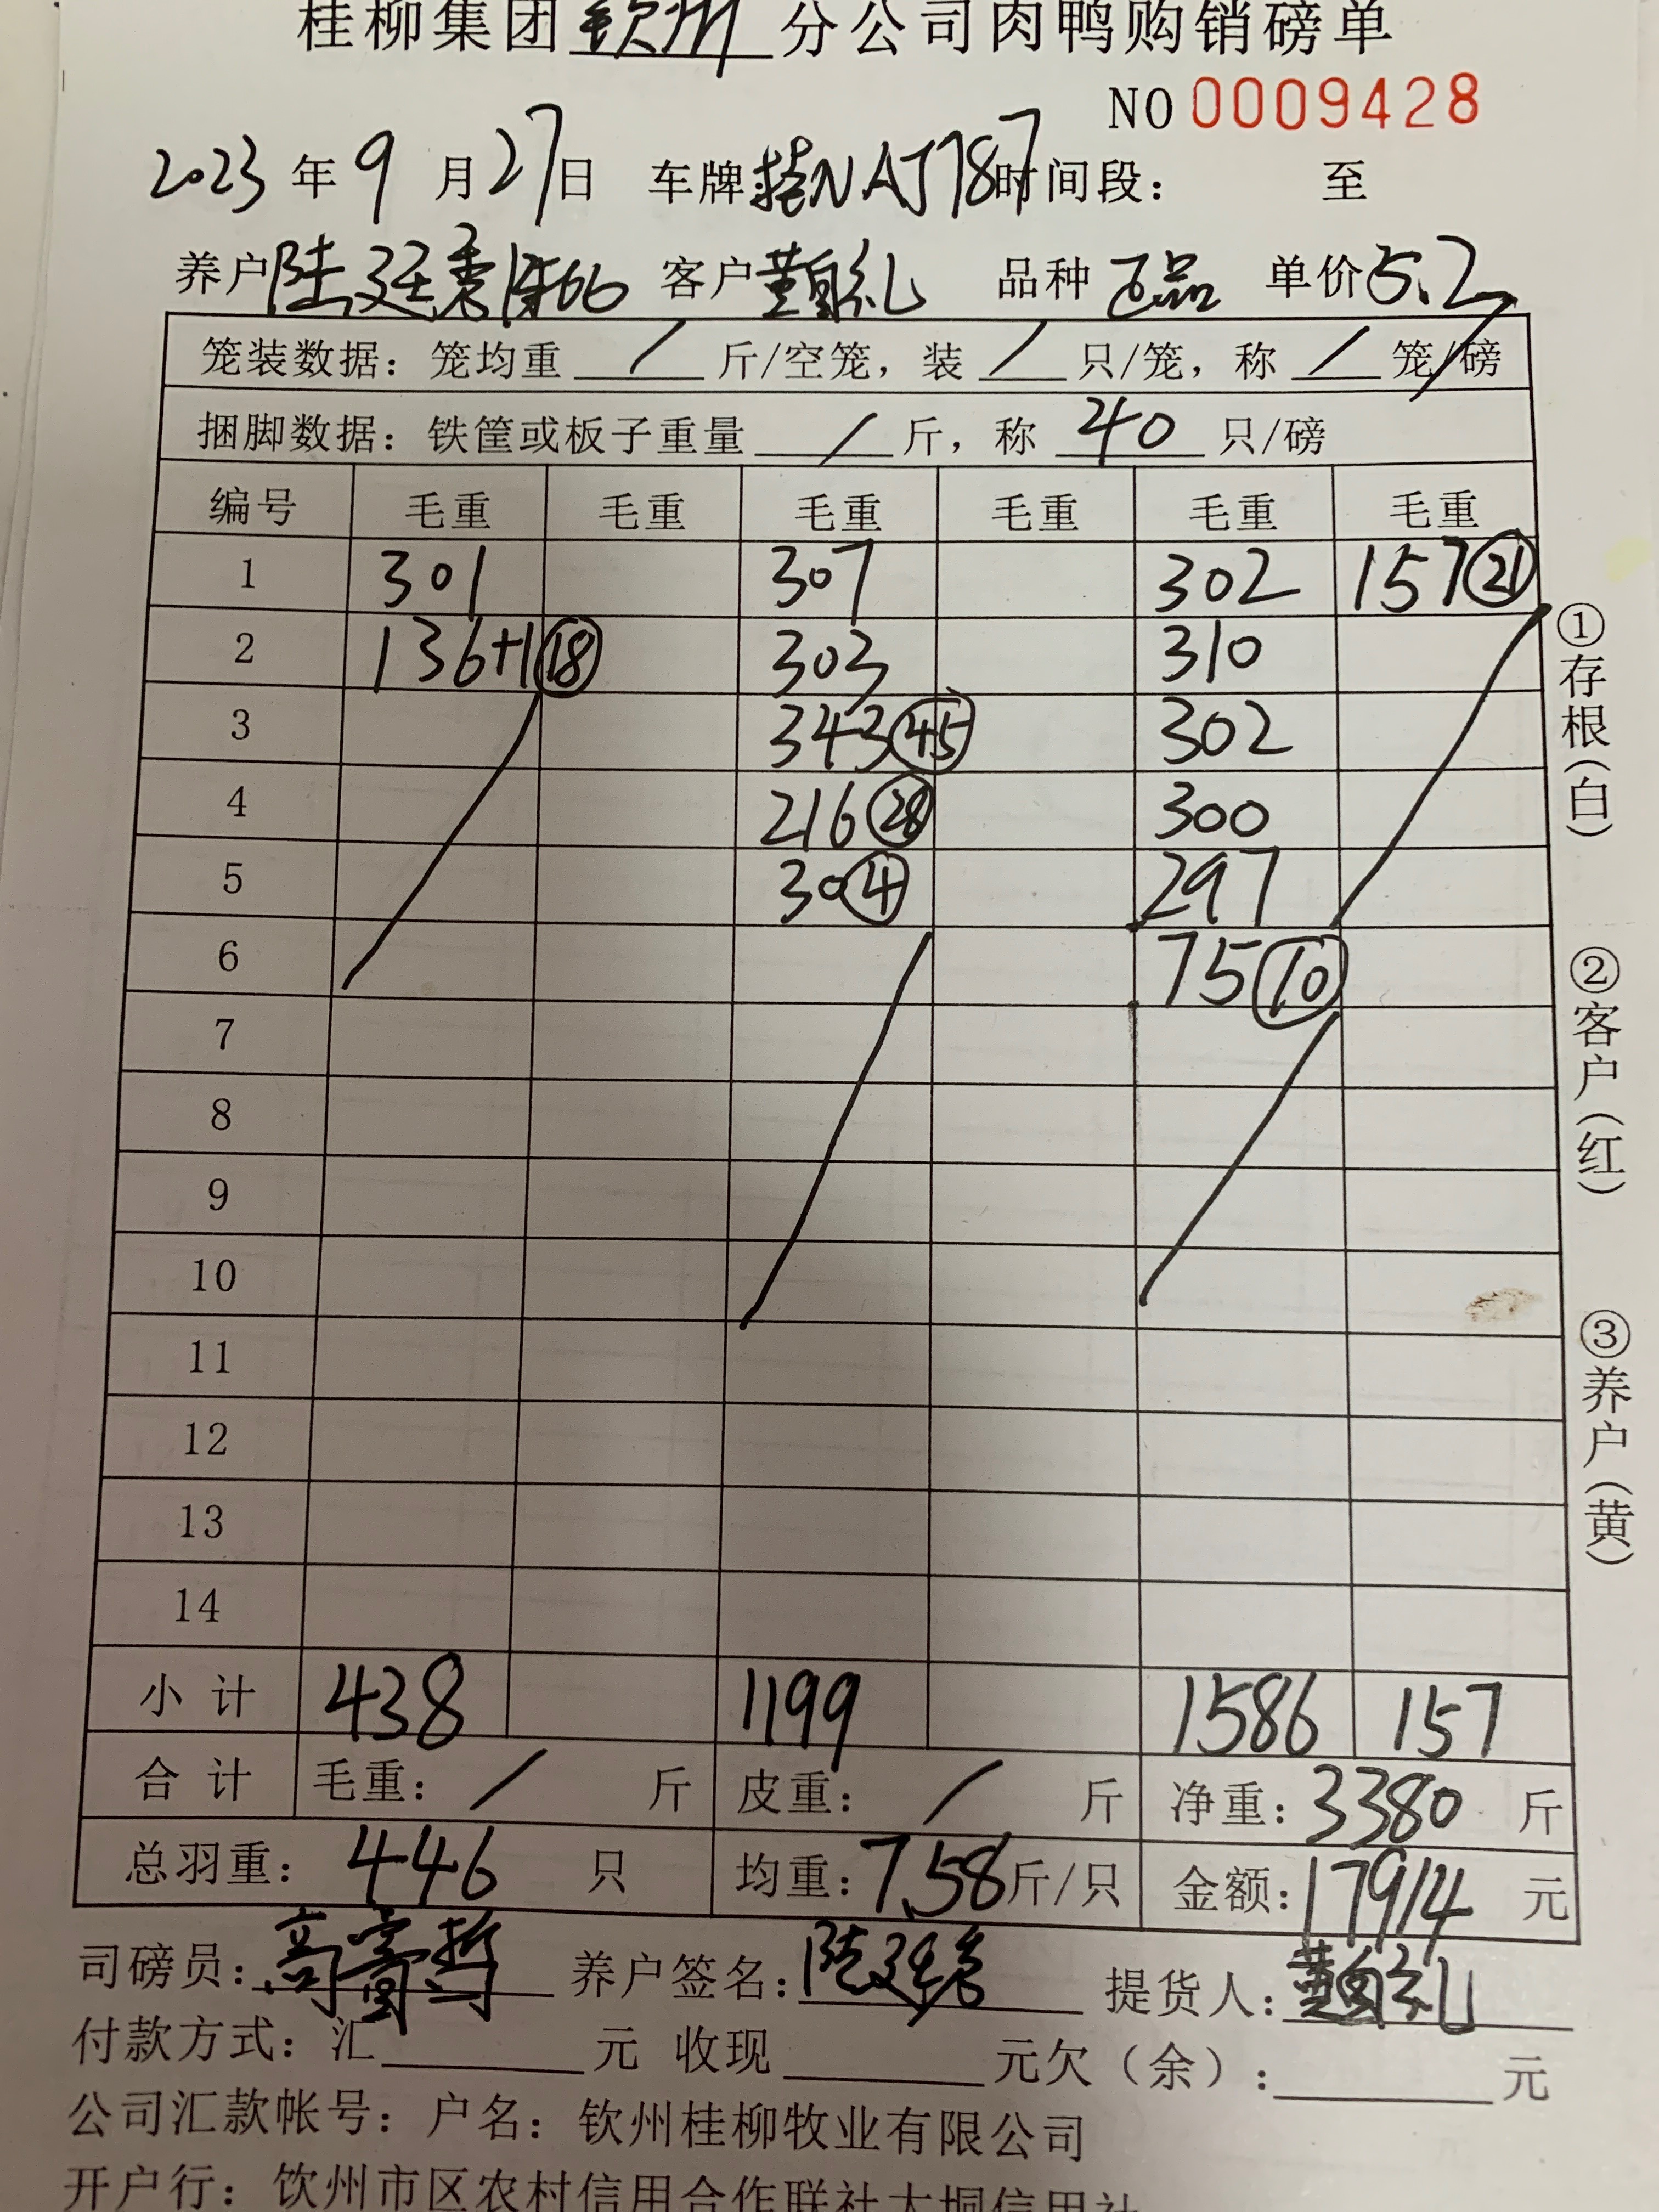 桂柳集团钦州分公司肉鸭购销磅单
NO 0009428
2023年9月27日 车牌桂NAJ787时间段： 至
养户陆廷秀 客户 品种 单价5.2
笼装数据：笼均重 / 斤/空笼，装 / 只/笼，称 / 笼/磅
捆脚数据：铁筐或板子重量 / 斤，称 40 只/磅
编号 毛重 毛重 毛重 毛重 毛重 毛重
1 301 307 302 157㉑
2 136+1⑱ 303 310
3 343㊺ 302
4 216㉘ 300
5 30④ 297
6 75⑩
7
8
9
10
11
12
13
14
小计 438 1199 1586 157
合计 毛重： / 斤 皮重： / 斤 净重：3380斤
总羽重：446 只 均重：7.58斤/只 金额：17914元
司磅员： 养户签名：陆廷秀 提货人：
付款方式：汇 元 收现 元欠（余）： 元
公司汇款帐号：户名：钦州桂柳牧业有限公司
开户行：钦州市区农村信用合作联社大垌信用社
①存根（白）
②客户（红）
③养户（黄）